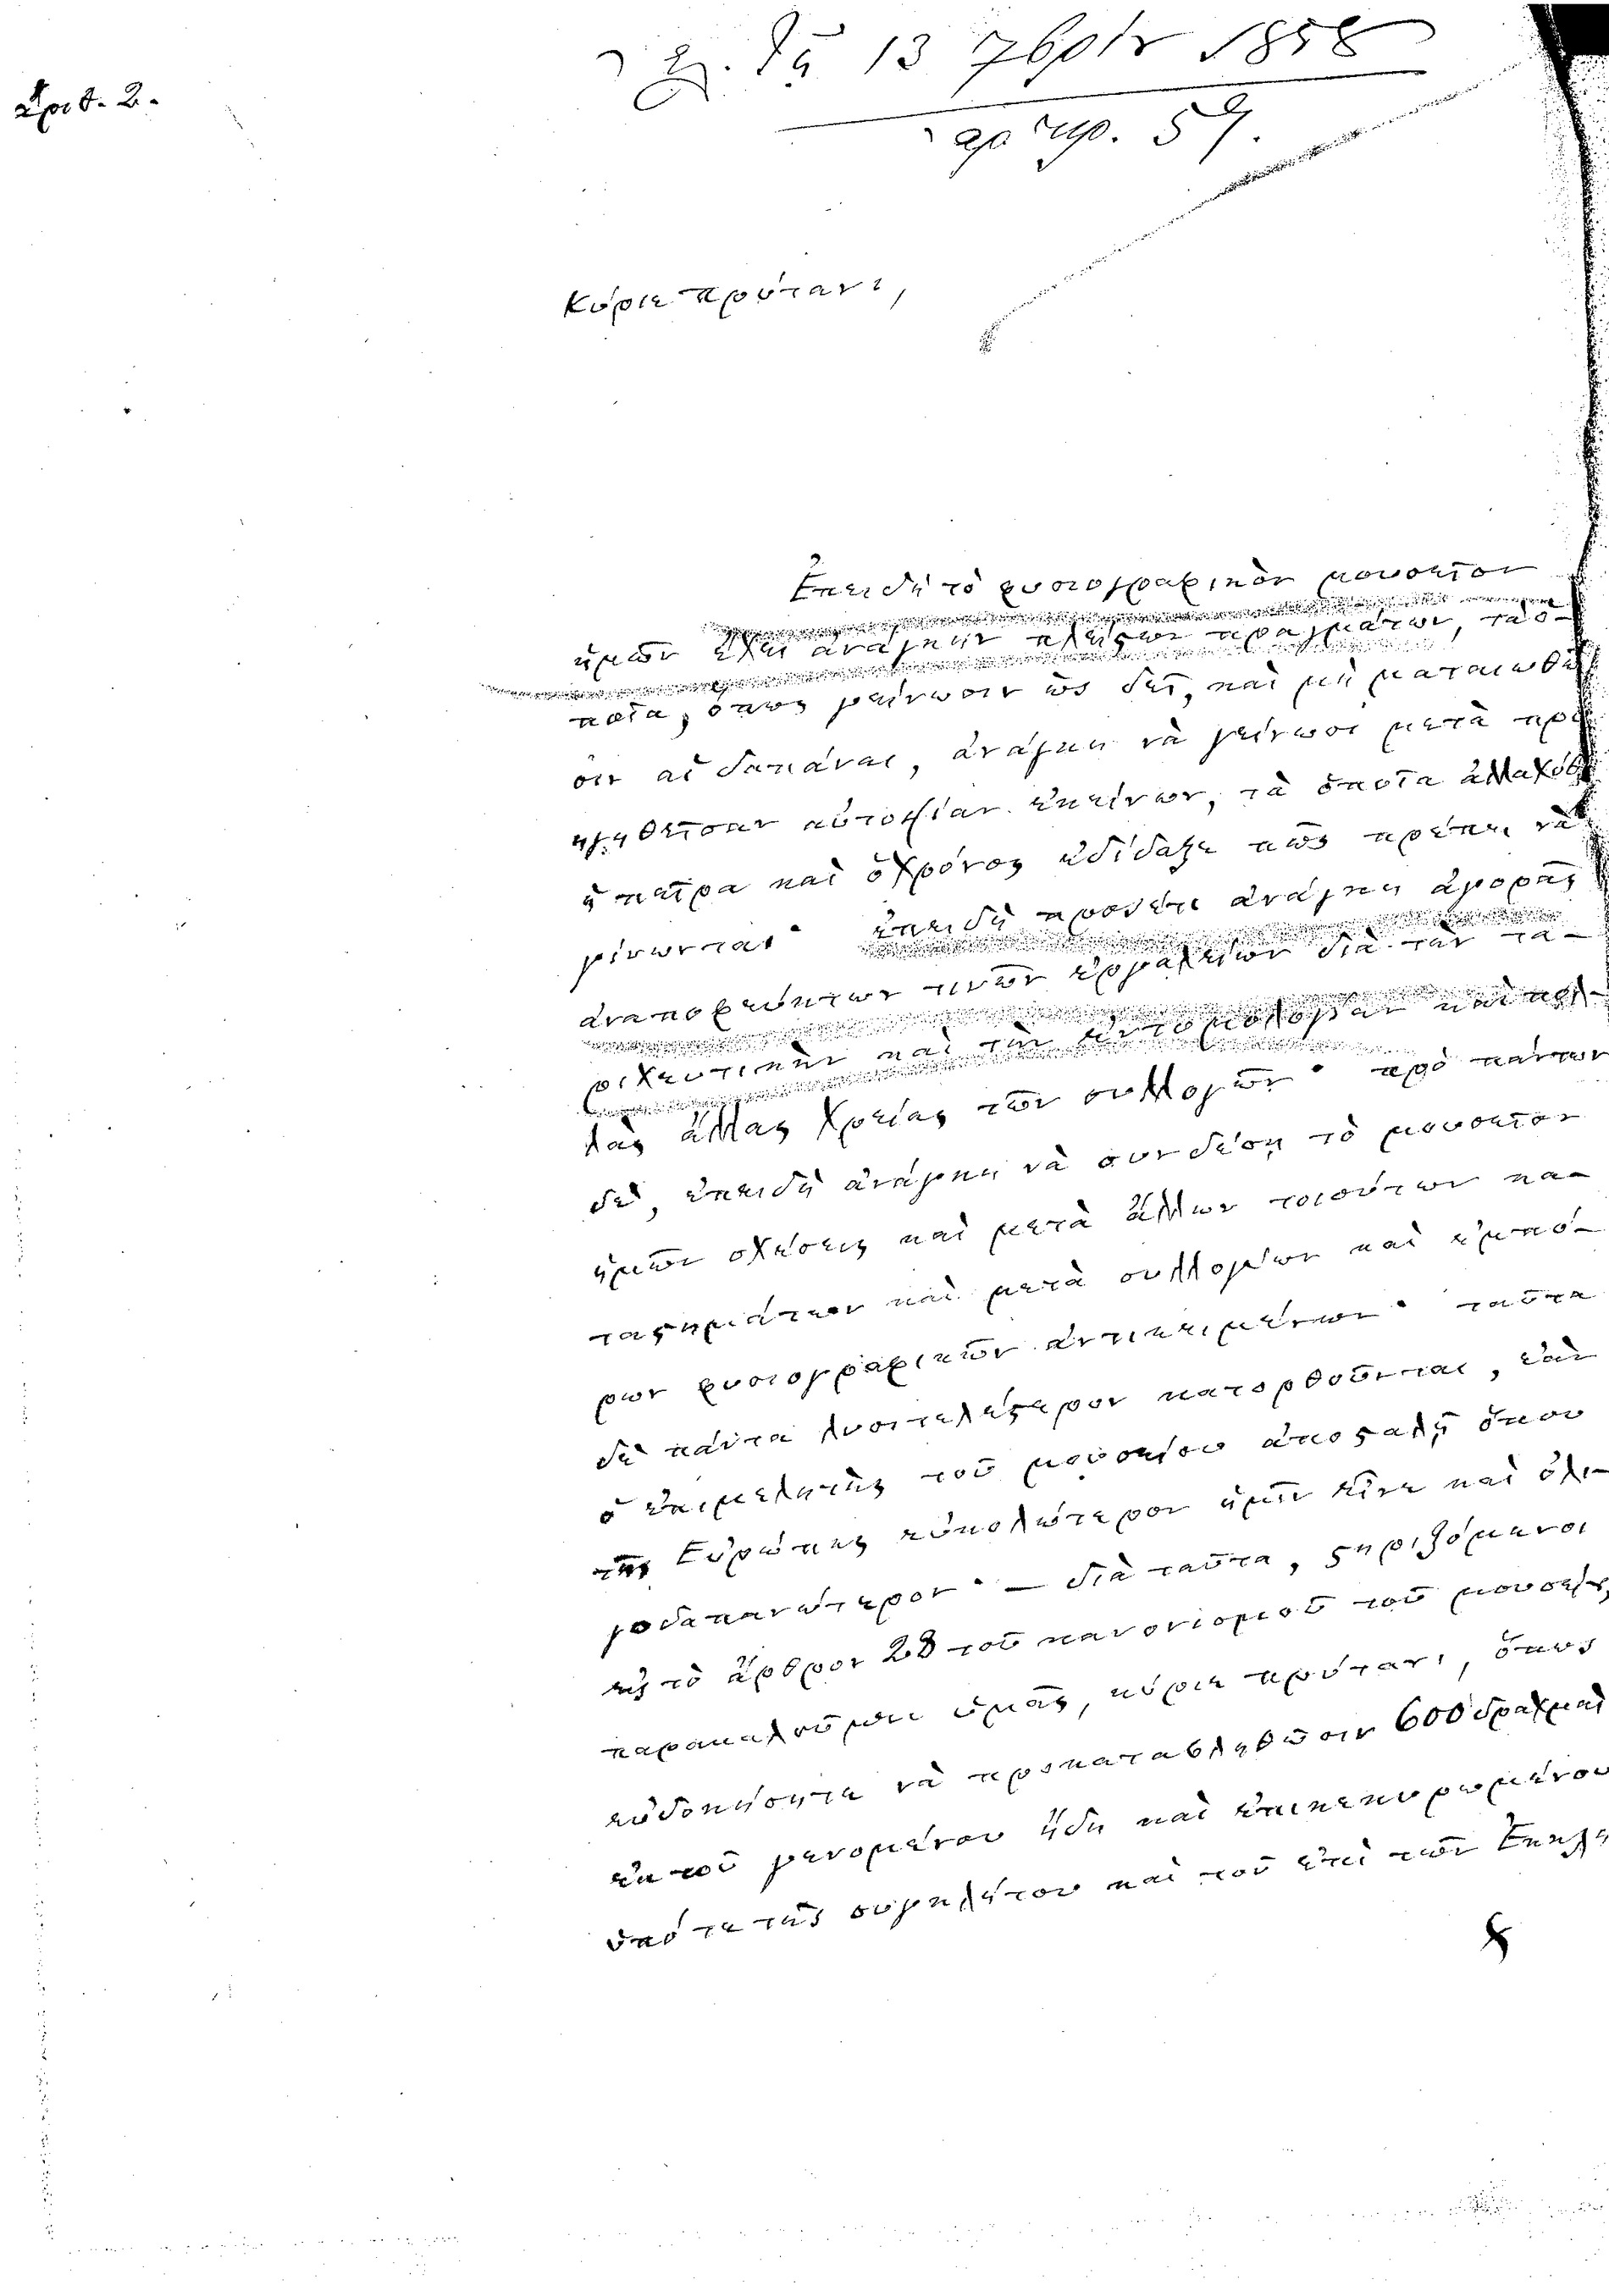 Ἀριθ. 2.
τῇ 13 7βρίου 1858
ἀρ πρ. 59.
Κύριε πρύτανι,
Ἐπειδὴ τὸ φυσιογραφικὸν μουσεῖον
ἡμῶν ἔχει ἀνάγκην πλείστων πραγμάτων, τὰ ὁ-
ποῖα, ὅπως γείνωσιν ὡς δεῖ, καὶ μὴ ματαιωθῶ
σιν αἱ δαπάναι, ἀνάγκη νὰ γείνωσι μετὰ προ
ηγηθεῖσαν αὐτοψίαν ἐκείνων, τὰ ὁποῖα ἀλλαχοῦ
ἡ πεῖρα καὶ ὁ χρόνος ἐδίδαξε πῶς πρέπει νὰ
γίνωνται· ἐπειδὴ προσέτι ἀνάγκη ἀγορᾶς
ἀναποφεύκτων τινῶν ἐργαλείων διὰ τὴν τα-
ριχευτικὴν καὶ τὴν ἐντομολογίαν καὶ πολ-
λὰς ἄλλας χρείας τῶν συλλογῶν· πρὸ πάντων
δὲ, ἐπειδὴ ἀνάγκη νὰ συνδέσῃ τὸ μουσεῖον
ἡμῶν σχέσεις καὶ μετὰ ἄλλων τοιούτων κα-
ταστημάτων καὶ μετὰ συλλογέων καὶ ἐμπό-
ρων φυσιογραφικῶν ἀντικειμένων· ταῦτα
δὲ πάντα λυσιτελέστερον κατορθοῦνται, ἐὰν
ὁ ἐπιμελητὴς τοῦ μουσείου ἀποσταλῇ ὅπου
τῆς Εὐρώπης εὐκολώτερον ἡμῖν εἶνε καὶ ὀλι-
γοδαπανώτερον· — διὰ ταῦτα, στηριζόμενοι
εἰς τὸ ἄρθρον 28 τοῦ κανονισμοῦ τοῦ μουσείου,
παρακαλοῦμεν ὑμᾶς, κύριε πρύτανι, ὅπως
εὐδοκήσητε νὰ προκαταβληθῶσιν 600 δραχμαὶ
ἐκ τοῦ γενομένου ἤδη καὶ ἐπικεκυρωμένου
ὑπό τε τῆς συγκλήτου καὶ τοῦ ἐπὶ τῶν Ἐκκλη